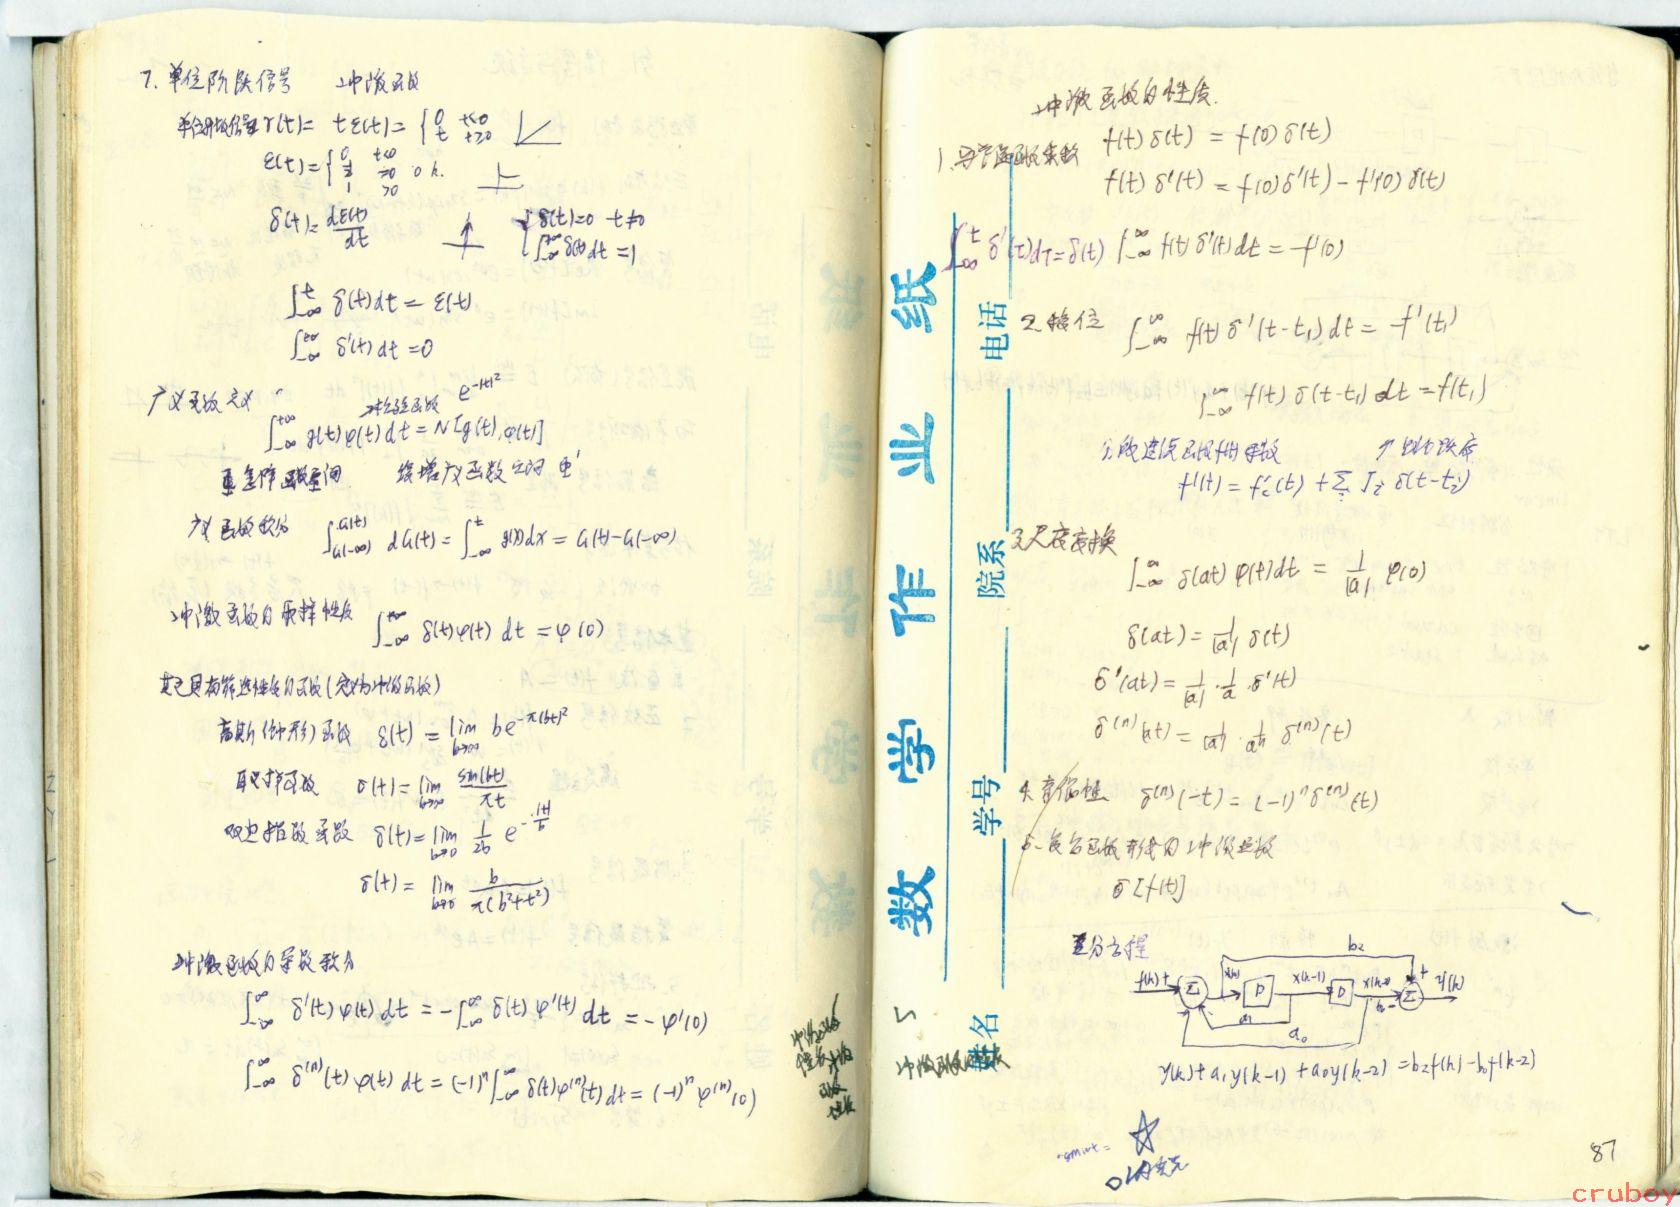 7. 单位阶跃信号 冲激函数
单位斜坡信号 r(t)= tε(t)= { 0 t<0
t t≥0
ε(t)= { 0 t<0
½ =0
1 >0
δ(t)= dε(t)/dt { δ(t)=0 t≠0
∫_{-∞}^{+∞} δ(t)dt =1
∫_{-∞}^{t} δ(t)dt = ε(t)
∫_{-∞}^{+∞} δ'(t)dt =0
广义函数定义 e^{-|t|²}
→检验函数
∫_{-∞}^{+∞} g(t)φ(t)dt = N[g(t),φ(t)]
急降函数空间 缓增广义函数空间 Φ'
广义函数积分 ∫_{G(-∞)}^{G(t)} dG(t) = ∫_{-∞}^{t} g(x)dx = G(t)-G(-∞)
冲激函数的取样性质
∫_{-∞}^{+∞} δ(t)φ(t) dt = φ(0)
其它具有筛选性质的函数(定义为冲激函数)
高斯(钟形)函数 δ(t) = lim_{b→∞} be^{-π(bt)²}
取样函数 δ(t)= lim_{b→∞} sin(bt)/πt
双边指数函数 δ(t)= lim_{b→0} 1/2b e^{-|t|/b}
δ(t)= lim_{b→0} b/π(b²+t²)
冲激函数的导数积分
∫_{-∞}^{∞} δ'(t)φ(t) dt = -∫_{-∞}^{∞} δ(t)φ'(t) dt = -φ'(0)
∫_{-∞}^{∞} δ^{(n)}(t)φ(t) dt = (-1)^n ∫_{-∞}^{∞} δ(t)φ^{(n)}(t)dt = (-1)^n φ^{(n)}(0)
冲激函数
性质
函数
性质
数学作业纸
电话
院系
学号
姓名
5
冲激函数
冲激函数的性质.
f(t)δ(t) = f(0)δ(t)
1. 与普通函数乘数
f(t)δ'(t) = f(0)δ'(t)-f'(0)δ(t)
∫_{-∞}^{t} δ'(τ)dτ=δ(t) ∫_{-∞}^{∞} f(t)δ'(t)dt = -f'(0)
2. 移位 ∫_{-∞}^{∞} f(t)δ'(t-t₁)dt = -f'(t₁)
∫_{-∞}^{∞} f(t)δ(t-t₁)dt = f(t₁)
分段连续函数f(t)导数
f'(t)= f'c(t) + Σ_i J_i δ(t-t_i)
3. 尺度变换
∫_{-∞}^{∞} δ(at)φ(t)dt = 1/|a| φ(0)
δ(at)= 1/|a| δ(t)
δ'(at)= 1/|a| · 1/a · δ'(t)
δ^{(n)}(at)= 1/|a| · 1/a^n δ^{(n)}(t)
4. 奇偶性 δ^{(n)}(-t)= (-1)^n δ^{(n)}(t)
5. 复合函数形式的冲激函数
δ[f(t)]
差分方程 b₂
f(k) + Σ x(k) D x(k-1) D x(k-2) b₀ - Σ + y(k)
a₁
a₀
y(k)+a₁y(k-1)+a₀y(k-2)=b₂f(k)-b₀f(k-2)
87
cruboy